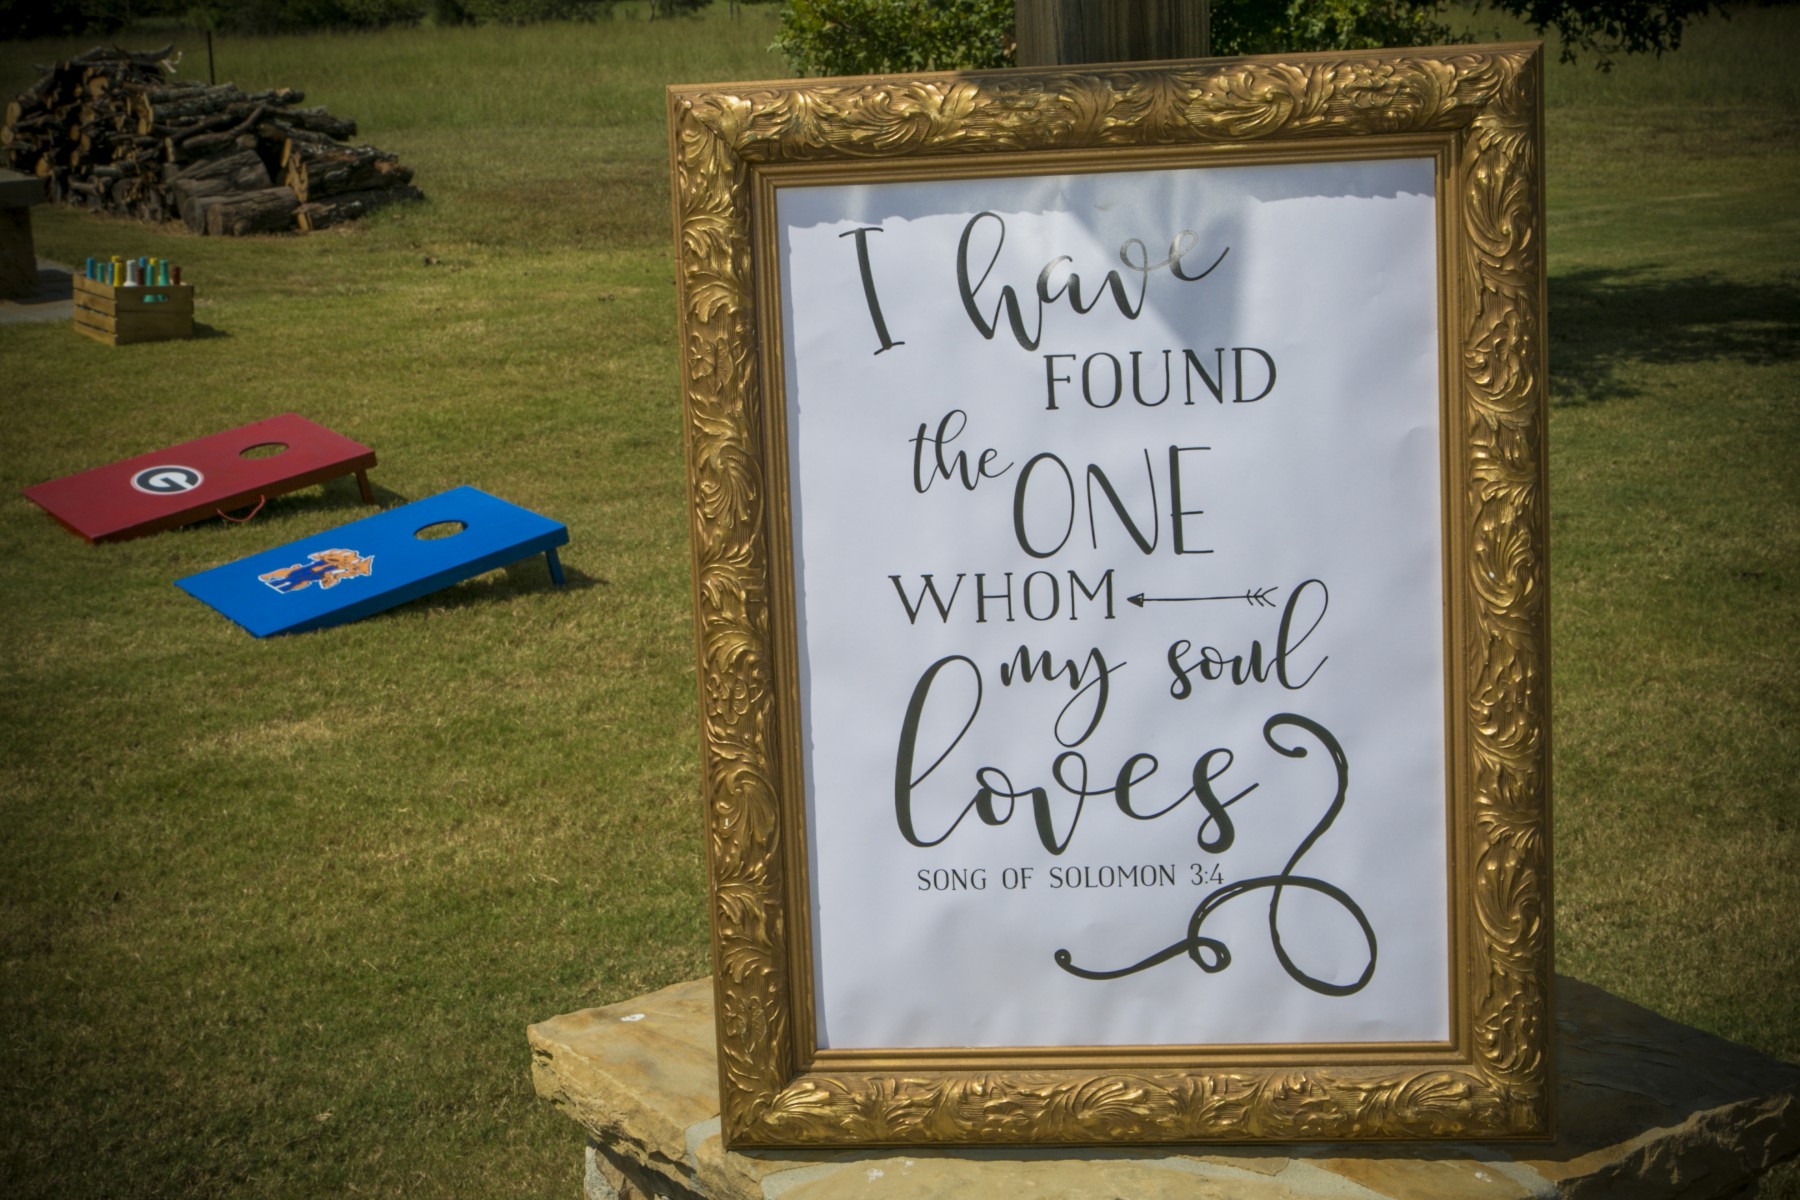 G
I have
FOUND
the ONE
WHOM
my soul
loves
SONG OF SOLOMON 3:4